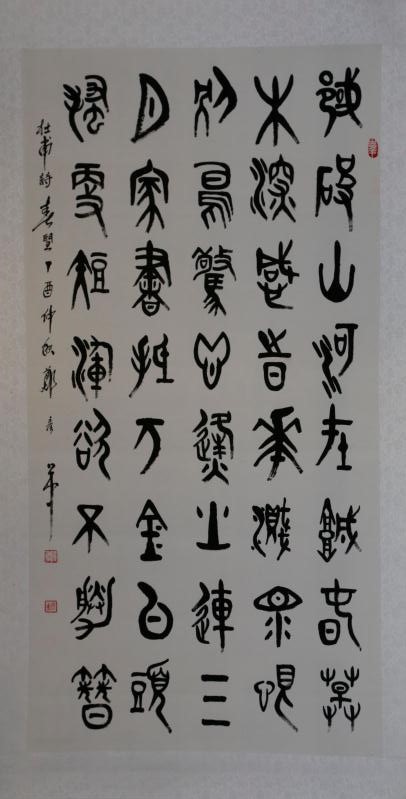 國破山河在城春草
木深感時花濺淚恨
別鳥驚心烽火連三
月家書抵万金白頭
搔更短渾欲不勝簪
杜甫詩春望丁酉仲秋鄭